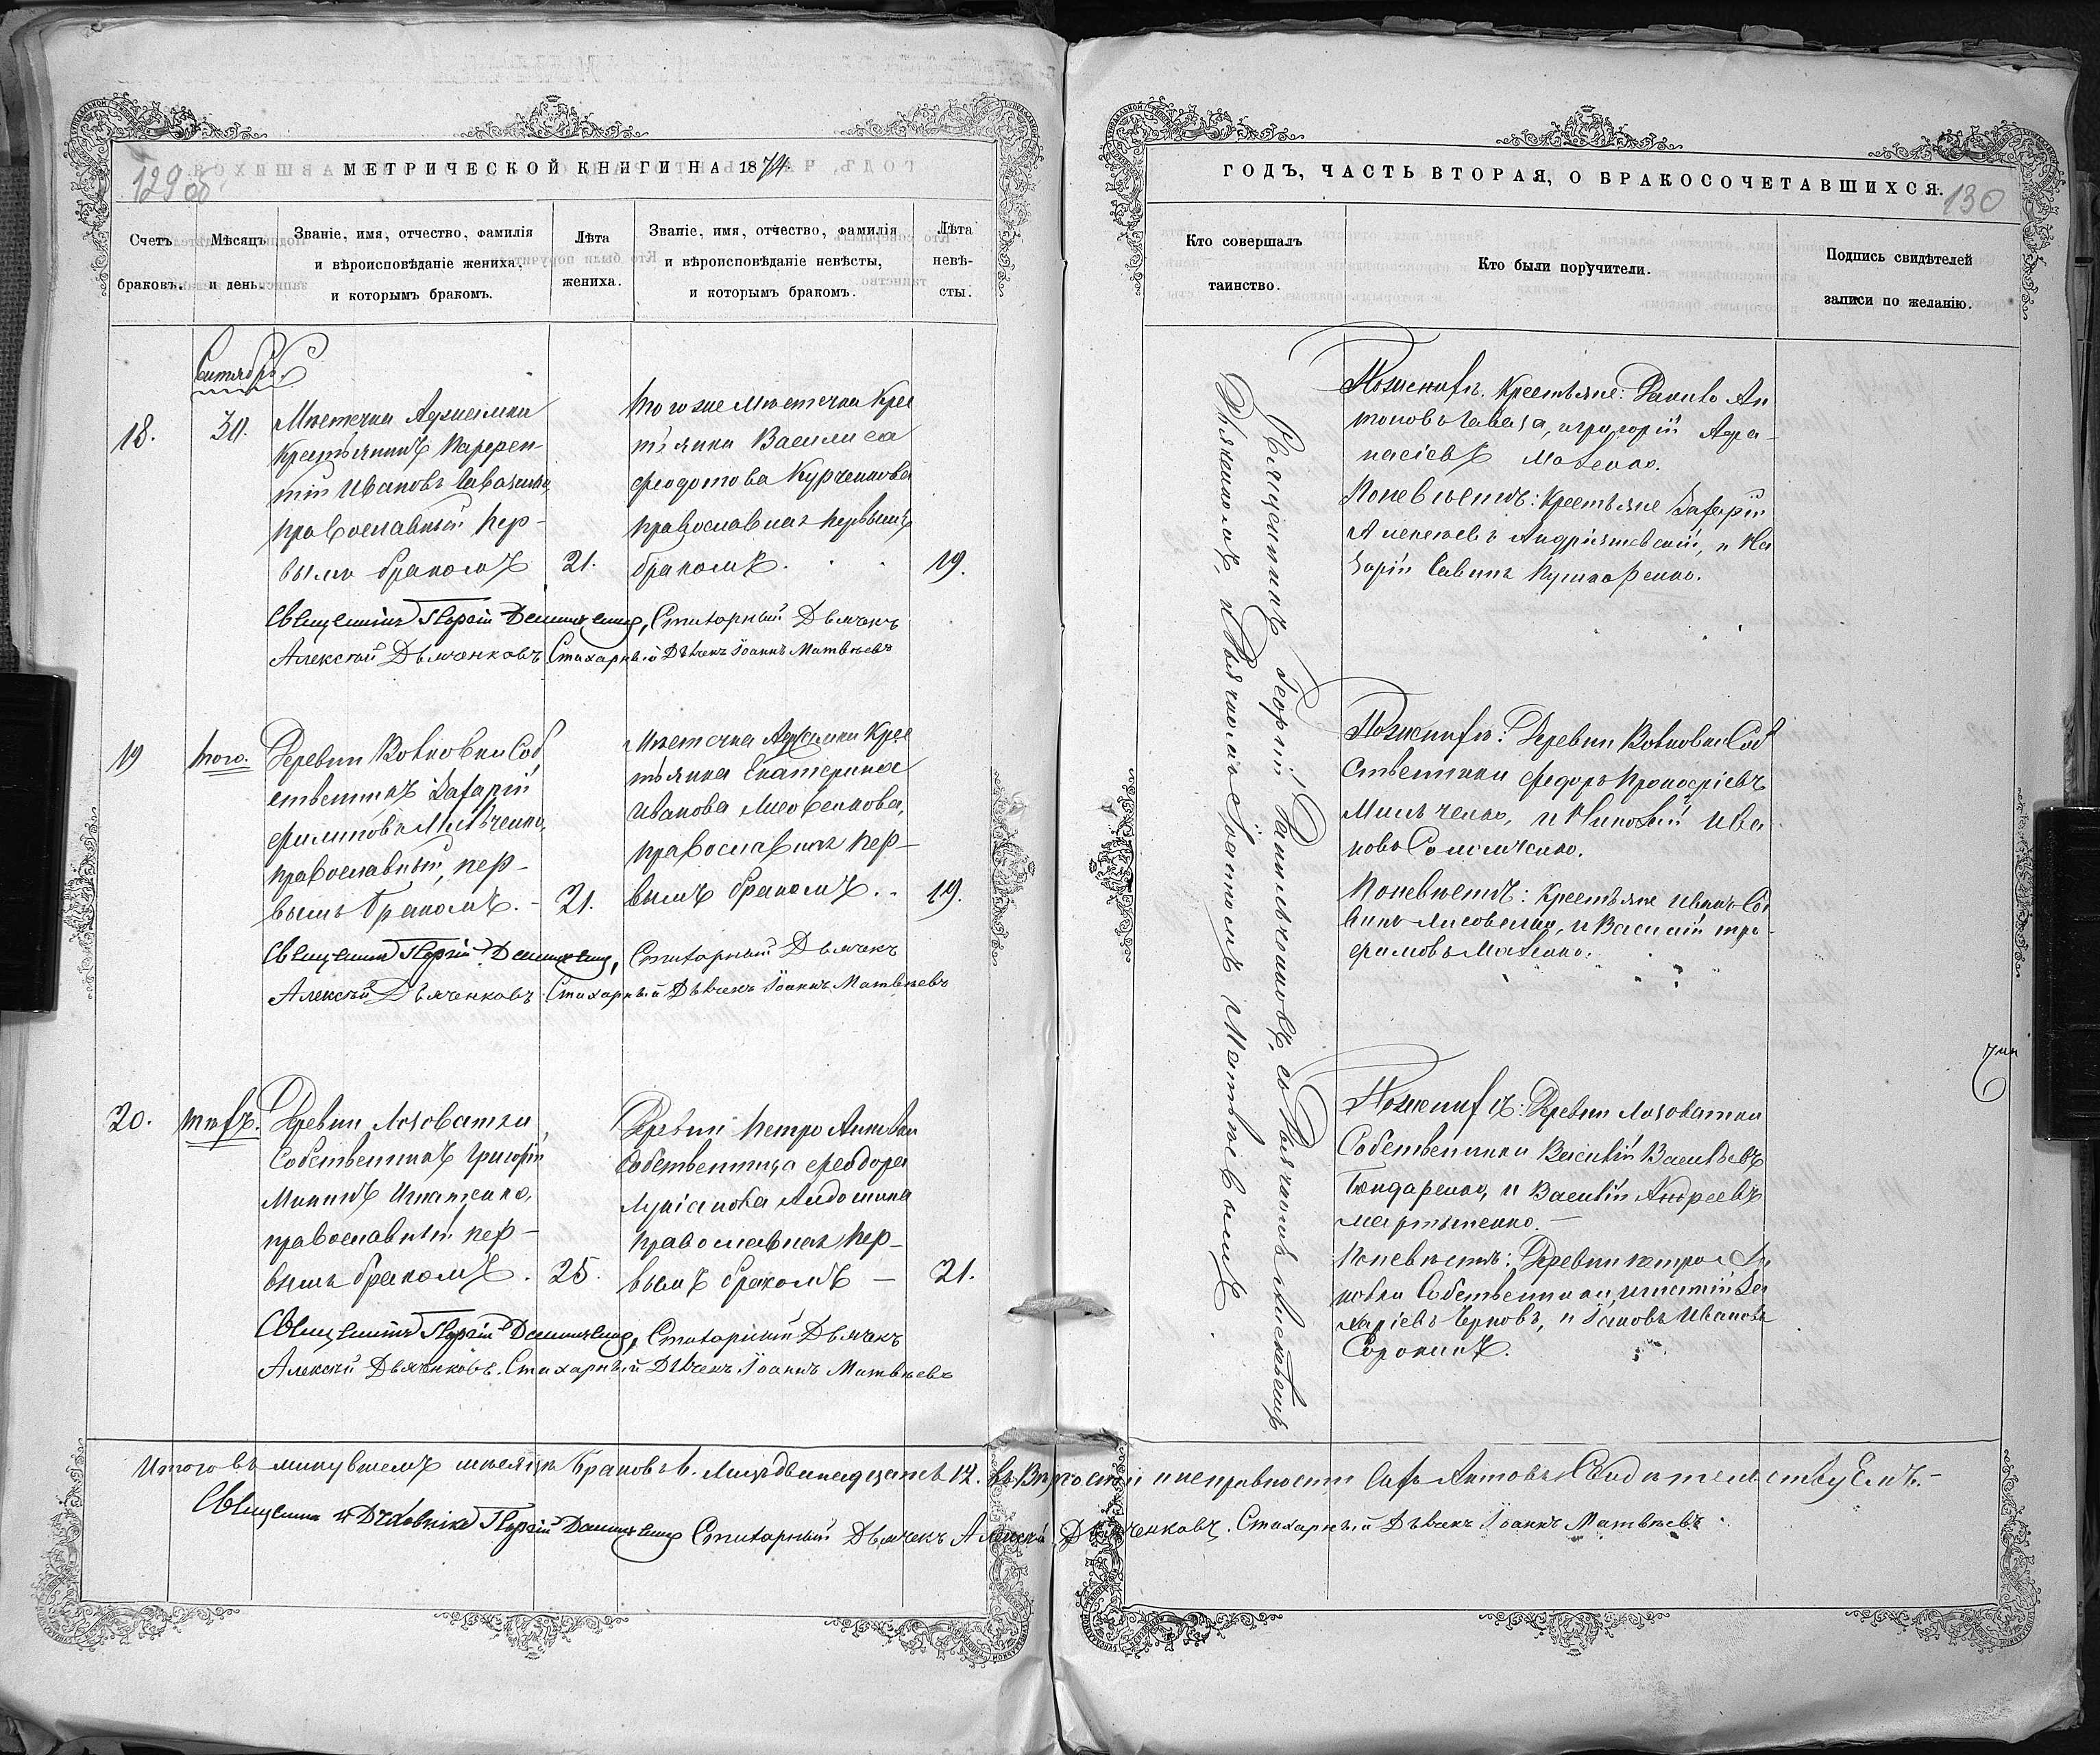 МЕТРИЧЕСКОЙ КНИГИ НА 1874
129 об.
Счетъ браковъ.
Мѣсяцъ и день.
Званіе, имя, отчество, фамилія
и вѣроисповѣданіе жениха,
и которымъ бракомъ.
Лѣта
жениха.
Званіе, имя, отчество, фамилія
и вѣроисповѣданіе невѣсты,
и которымъ бракомъ.
Лѣта
невѣ-
сты.
Сентябрь.
18.
30.
Мѣстечка
Крестьянинъ
Ивановъ
православный пер-
вымъ бракомъ
21.
тогоже мѣстечка Крес
тьянка Василиса
Феодотова Курченкова
православная первымъ
бракомъ.
19.
Священникъ Георгій Данильченко, Стихарный Дьячекъ
Алексѣй Дьяченковъ Стихарный Дьячекъ Іоаннъ Матвѣевъ
19
того.
Деревни Волковки Соб
ственникъ Захарій
Филиповъ Мильченко,
православный, пер-
вымъ бракомъ. -
21.
Мѣстечка Крес
тьянка Екатерина
Иванова Лисовенкова,
православная пер-
вымъ бракомъ. .
19.
Священникъ Георгій Данильченко, Стихарный Дьячекъ
Алексѣй Дьяченковъ Стихарный Дьячекъ Іоаннъ Матвѣевъ
20.
тѣхъ.
Деревни Лозоватки
Собственникъ Григорій
Игнатенко,
православный пер-
вымъ бракомъ.
25.
Деревни Петро
Собственница Феодора
Лукіанова
православная пер-
вымъ бракомъ -
21.
Священникъ Георгій Данильченко, Стихарный Дьячекъ
Алексѣй Дьяченковъ. Стихарный Дьячекъ Іоаннъ Матвѣевъ
Итого въ минувшемъ мѣсяцѣ браковъ 6. Лицъ двенадцать 12. въ вѣрности и исправности сихъ Актовъ Свидѣтельствуемъ. -
Священникъ Георгій Данильченко Стихарный Дьячекъ Алексѣй Дьяченковъ. Стихарный Дьячекъ Іоаннъ Матвѣевъ
ГОДЪ, ЧАСТЬ ВТОРАЯ, О БРАКОСОЧЕТАВШИХСЯ.
130
Кто совершалъ
таинство.
Кто были поручители.
Подпись свидѣтелей
записи по желанію.
Священникъ Георгій Данильченковъ, съ Дьячкомъ Алексѣемъ
Дьяченкомъ, и Дьячкомъ Іоанномъ Матвѣевымъ
По женихѣ. Крестьяне: Данило Ан
тоновъ Саваза, и Григорій Афа-
насіевъ
По невѣстѣ: Крестьяне Захарій
Алексѣевъ Андріяшевскій, и На
зарій Савинъ Кушнаренко.
По женихѣ: Деревни Волковки Соб
ственники Федоръ Прокофіевъ
Мильченко, и Николай Ива
новъ
По невѣстѣ: Крестьяне Иванъ Са
винъ Лисовенко, и Василій Тро-
фимовъ
По женихѣ: Деревни Лозоватки
Собственники Василій Васильевъ
Бондаренко, и Василій Андреевъ
Мартыненко. -
По невѣстѣ: Деревни
Собственники, Игнатій За
харіевъ Черновъ, и Іаковъ Ивановъ
Сорокинъ.